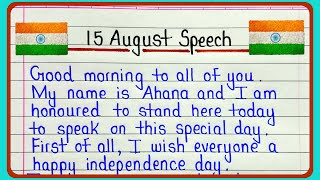 15 August Speech
Good morning to all of you.
My name is Ahana and I am
honoured to stand here today
to speak on this special day.
First of all, I wish everyone a
happy independence day.